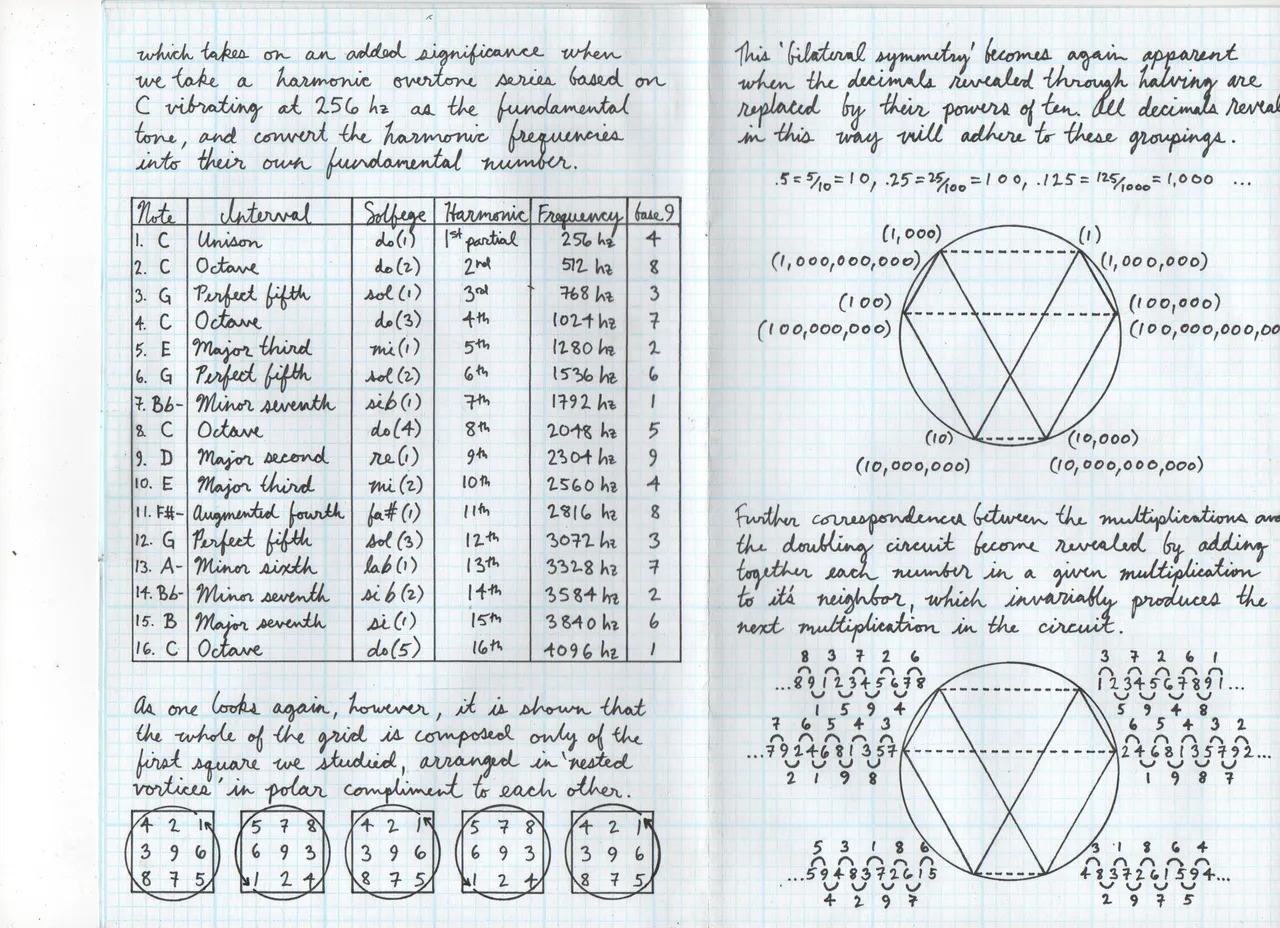 which takes on an added significance when
we take a harmonic overtone series based on
C vibrating at 256 hz as the fundamental
tone, and convert the harmonic frequencies
into their own fundamental number.
Note Interval Solfege Harmonic Frequency base 9
1. C Unison do(1) 1st partial 256 hz 4
2. C Octave do(2) 2nd 512 hz 8
3. G Perfect fifth sol(1) 3rd 768 hz 3
4. C Octave do(3) 4th 1024 hz 7
5. E Major third mi(1) 5th 1280 hz 2
6. G Perfect fifth sol(2) 6th 1536 hz 6
7. Bb- Minor seventh sib(1) 7th 1792 hz 1
8. C Octave do(4) 8th 2048 hz 5
9. D Major second re(1) 9th 2304 hz 9
10. E Major third mi(2) 10th 2560 hz 4
11. F#- Augmented fourth fa#(1) 11th 2816 hz 8
12. G Perfect fifth sol(3) 12th 3072 hz 3
13. A- Minor sixth lab(1) 13th 3328 hz 7
14. Bb- Minor seventh sib(2) 14th 3584 hz 2
15. B Major seventh si(1) 15th 3840 hz 6
16. C Octave do(5) 16th 4096 hz 1
As one looks again, however, it is shown that
the whole of the grid is composed only of the
first square we studied, arranged in 'nested
vortices' in polar compliment to each other.
4 2 1 5 7 8 4 2 1 5 7 8 4 2 1
3 9 6 6 9 3 3 9 6 6 9 3 3 9 6
8 7 5 1 2 4 8 7 5 1 2 4 8 7 5
This 'bilateral symmetry' becomes again apparent
when the decimals revealed through halving are
replaced by their powers of ten. All decimals reveal
in this way will adhere to these groupings.
.5 = 5/10 = 10, .25 = 25/100 = 100, .125 = 125/1000 = 1,000 ...
(1,000) (1)
(1,000,000,000) (1,000,000)
(100) (100,000)
(100,000,000) (100,000,000,00
(10) (10,000)
(10,000,000) (10,000,000,000)
Further correspondences between the multiplications an
the doubling circuit become revealed by adding
together each number in a given multiplication
to it's neighbor, which invariably produces the
next multiplication in the circuit.
8 3 7 2 6 3 7 2 6 1
...8912345678 1234567891...
1 5 9 4 5 9 4 8
7 6 5 4 3 6 5 4 3 2
...7924681357 2468135792...
2 1 9 8 1 9 8 7
5 3 1 8 6 3 1 8 6 4
...5948372615 4837261594...
4 2 9 7 2 9 7 5